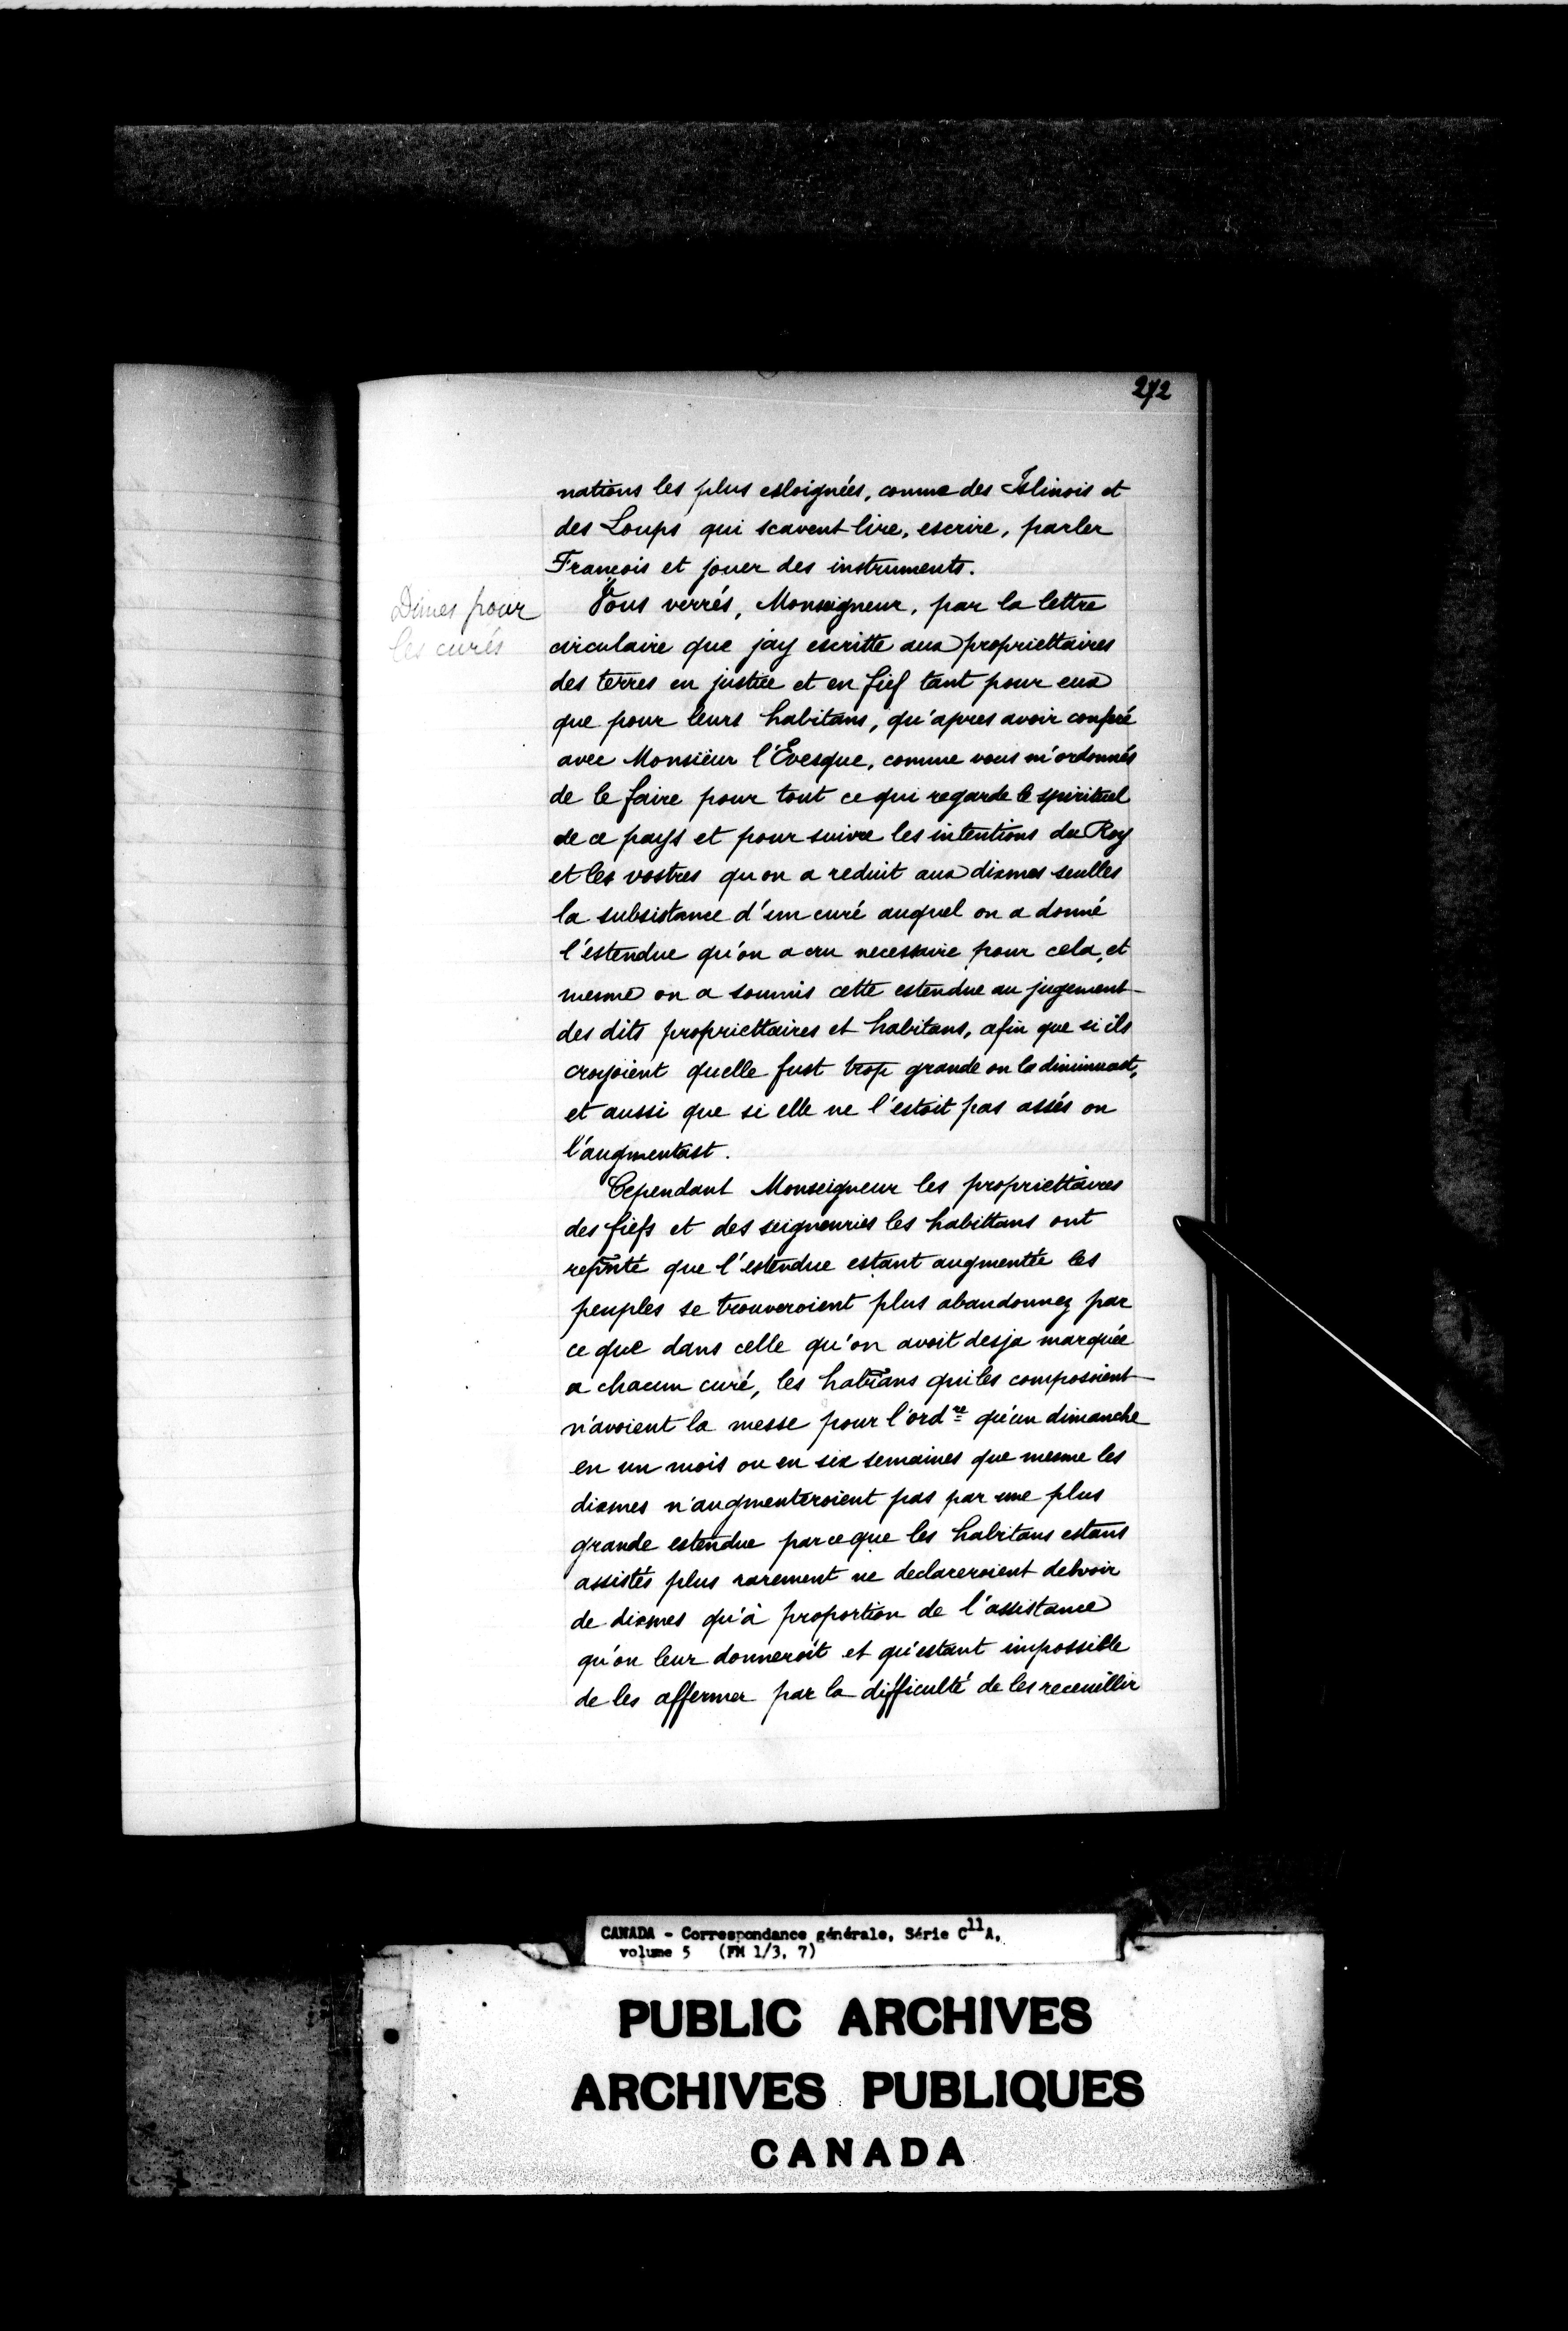 272
nations les plus esloignées, comme des Islinois et
des Loups qui scavent lire, escrire, parler
François et jouer des instruments.
Dimes pour
les curés
Vous verrés, Monseigneur, par la lettre
circulaire que jay escritte aux propriettaires
des terres en justice et en fief tant pour eux
que pour leurs habitans, qu'apres avoir conferé
avec Monsieur l'Evesque, comme vous m'ordonnés
de le faire pour tout ce qui regarde le spirituel
de ce pays et pour suivre les intentions du Roy
et les vostres qu on a reduit aux dixmes seulles
la subsistance d'un curé auquel on a donné
l'estendue qu'on a cru necessaire pour cela, et
mesme on a soumis cette estendue au jugement
des dits propriettaires et habitans, afin que si ils
croyoient quelle fust trop grande on la diminuast,
et aussi que si elle ne l'estoit pas assés on
l'augmentast.
Cependant Monseigneur les propriettaires
des fiefs et des seigneuries les habittans ont
repñté que l'estendue estant augmentée les
peuples se trouveroient plus abandonnez par
ce que dans celle qu'on avoit desja marquée
a chacun curé, les habitans qui les composoient
n'avoient la messe pour l'ord.re qu'un dimanche
en un mois ou en six semaines que mesme les
dixmes n'augmenteroient pas par une plus
grande estendue parceque les habitans estans
assistés plus rarement ne declareroient debvoir
de dixmes qu'à proportion de l'assistance
qu'on leur donneroit et qu'estant impossible
de les affermer par la difficulté de les receuillir
CANADA - Correspondance générale, Série C11A,
volume 5 (FM 1/3, 7)
PUBLIC ARCHIVES
ARCHIVES PUBLIQUES
CANADA